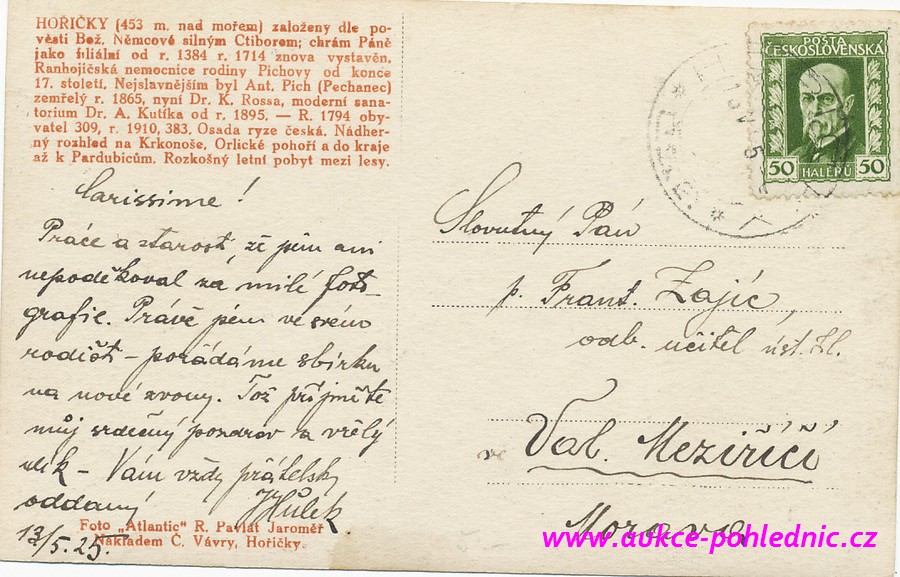 HOŘIČKY (453 m. nad mořem) založeny dle po-
věsti Bož. Němcové silným Ctiborem; chrám Páně
jako filiální od r. 1384 r. 1714 znova vystavěn.
Ranhojičská nemocnice rodiny Pichovy od konce
17. století. Nejslavnějším byl Ant. Pich (Pechanec)
zemřelý r. 1865, nyní Dr. K. Rossa, moderní sana-
torium Dr. A. Kutíka od r. 1895. — R. 1794 oby-
vatel 309, r. 1910, 383. Osada ryze česká. Nádher-
ný rozhled na Krkonoše, Orlické pohoří a do kraje
až k Pardubicům. Rozkošný letní pobyt mezi lesy.
Carissime!
Práce a starost, že jsem ani
nepoděkoval za milé foto-
grafie. Právě jsem ve svém
rodišti - pořádáme sbírku
na nové zvony. Tož přijměte
můj srdečný pozdrav a vřelý
dík - Vám vždy přátelsky
oddaný JHůlek
13/5.25.
Foto „Atlantic" R. Pavlát Jaroměř
Nákladem Č. Vávry, Hořičky.
POŠTA
ČESKOSLOVENSKÁ
50 HALÉŘŮ 50
Slovutný Pán
p. Frant. Zajíc,
odb. učitel úst. hl.
ve Val. Meziříčí
Morava
www.aukce-pohlednic.cz